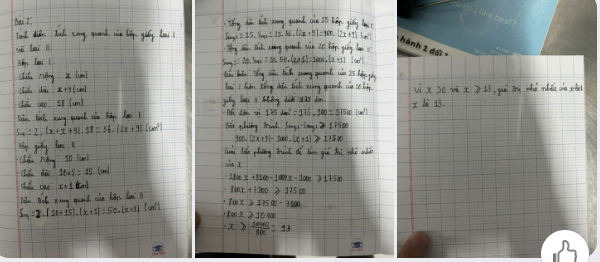 Bài 2.
Tính diện tích xung quanh của hộp giấy loại I
và loại II.
Hộp loại I.
- Chiều rộng: x (cm)
- Chiều dài: x+9 (cm)
- Chiều cao: 18 (cm)
Diện tích xung quanh của hộp loại I
Sxq = 2.(x+x+9).18 = 36.(2x+9) (cm²)
Hộp giấy loại II
- Chiều rộng: 10 (cm)
- Chiều dài: 10+5 = 15 (cm)
- Chiều cao: x+1 (cm)
Diện tích xung quanh của hộp loại II
Sxq = 2.(10+15).(x+1) = 50.(x+1) (cm²)
- Tổng diện tích xung quanh của 25 hộp giấy loại I
= 25. = 25.36.(2x+9) = 900.(2x+9) (cm²)
- Tổng diện tích xung quanh của 20 hộp giấy loại II
= 20. = 20.50.(x+1) = 1000.(x+1) (cm²)
Tổng diện tích xung quanh của 25 hộp giấy
loại I hơn tổng diện tích xung quanh của 20 hộp
giấy loại II không dưới
- Đổi đơn vị 175 dm² = 175.100 = 17500 (cm²)
bất phương trình ≥ 17500
900.(2x+9) - 1000.(x+1) ≥ 17500
Giải bất phương trình để tìm giá trị nhỏ nhất
của x
- 1800x + 8100 - 1000x - 1000 ≥ 17500
- 800x + 7100 ≥ 17500
- 800x ≥ 17500 - 7100
- 800x ≥ 10400
- x ≥ 10400/800 = 13
Vì x > 0 và x ≥ 13, giá trị nhỏ nhất của
x là 13.
like best?
hành 1 đối